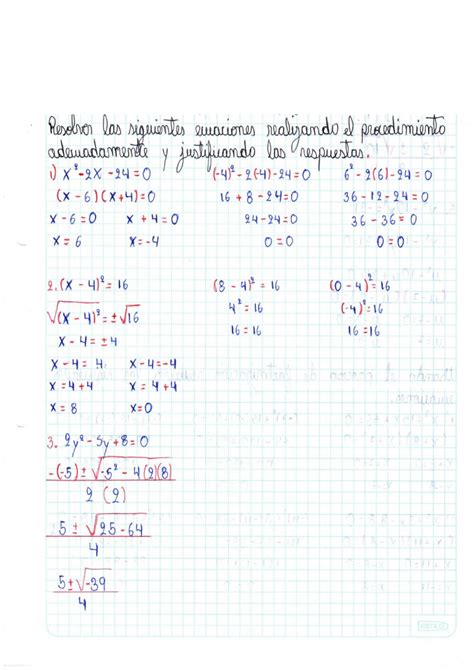 Resolver las siguientes ecuaciones realizando el procedimiento
adecuadamente y justificando las respuestas.
1) x²-2x-24=0 (-4)²-2(-4)-24=0 6²-2(6)-24=0
(x-6)(x+4)=0 16+8-24=0 36-12-24=0
x-6=0 x+4=0 24-24=0 36-36=0
x=6 x=-4 0=0 0=0
2. (x-4)²=16 (8-4)²=16 (0-4)²=16
√(x-4)²=±√16 4²=16 (-4)²=16
x-4=±4 16=16 16=16
x-4=4 x-4=-4
x=4+4 x=4+4
x=8 x=0
3. 2y²-5y+8=0
-(-5)±√-5²-4(2)(8)
2(2)
5±√25-64
4
5±√-39
4